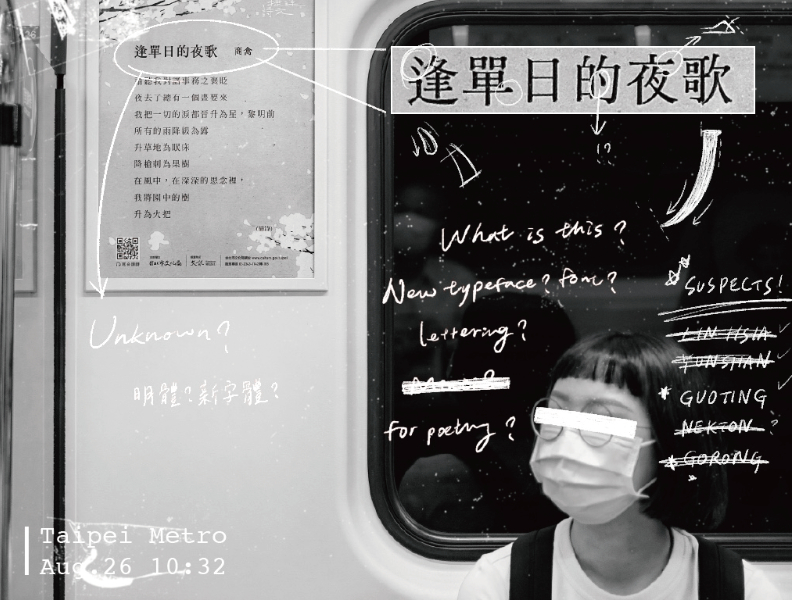 逢單日的夜歌 商禽
夜去了總有一個 要來
我把一切的淚都晉升為星，黎明前
所有的雨降級為露
升草地為眠床
降槍刺為果樹
在風中，在深深的思念裡，
我將園中的樹
升為火把
(節錄)
逢單日的夜歌
!?
What is this?
New typeface? font?
lettering?
for poetry?
SUSPECTS!
LIN HSIA
YUNSHAN
GUOTING
NEKTON ?
GORONG
Unknown?
明體？新字體？
Taipei Metro
Aug.26 10:32